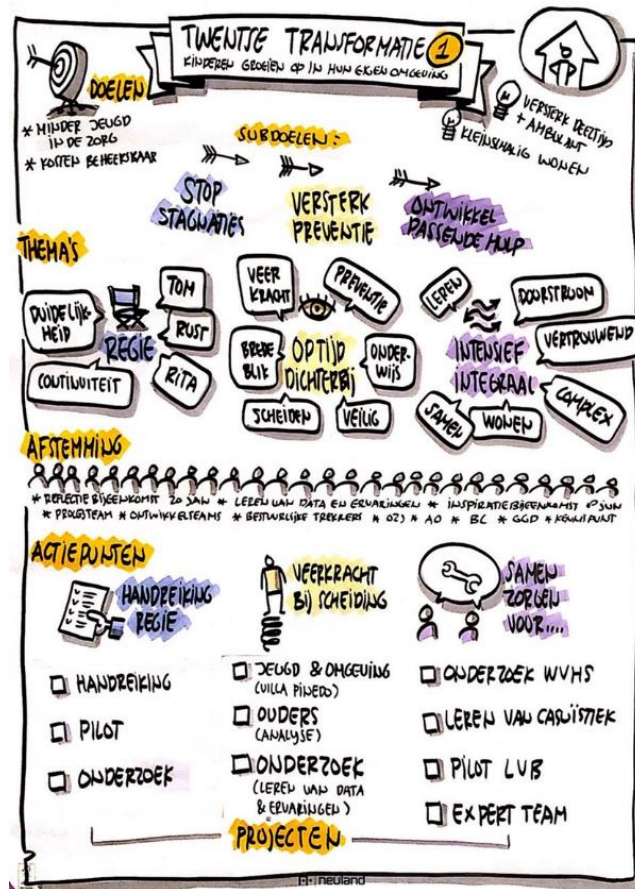 TWENTSE TRANSFORMATIE 1
KINDEREN GROEIEN OP IN HUN EIGEN OMGEVING
DOELEN
* MINDER JEUGD
IN DE ZORG
* KOSTEN BEHEERSBAAR
VERSTERK DEELTIJD
+ AMBULANT
KLEINSCHALIG WONEN
SUBDOELEN:
STOP
STAGNATIES
VERSTERK
PREVENTIE
ONTWIKKEL
PASSENDE HULP
THEMA'S
DUIDELIJK-
HEID
TOM
RUST
REGIE
CONTINUITEIT
RITA
VEER
KRACHT
PREVENTIE
BREDE
BLIK
OP TIJD
DICHTERBIJ
ONDER-
WIJS
SCHEIDEN
VEILIG
LEREN
DOORSTROOM
VERTROUWEND
INTENSIEF
INTEGRAAL
SAMEN
WONEN
COMPLEX
AFSTEMMING
* REFLECTIE BIJEENKOMST 20 JAN * LEREN VAN DATA EN ERVARINGEN * INSPIRATIEBIJEENKOMST JUN
* PROCESTEAM * ONTWIKKELTEAMS * BESTUURLIJKE TREKKERS * OZJ * AO * BC * GGD * KENNISPUNT
ACTIEPUNTEN
HANDREIKING
REGIE
VEERKRACHT
BIJ SCHEIDING
SAMEN
ZORGEN
VOOR....
HANDREIKING
PILOT
ONDERZOEK
JEUGD & OMGEVING
(VILLA PINEDO)
OUDERS
(ANALYSE)
ONDERZOEK
(LEREN VAN DATA
& ERVARINGEN)
ONDERZOEK WVHS
LEREN VAN CASUÏSTIEK
PILOT LVB
EXPERT TEAM
PROJECTEN
neuland